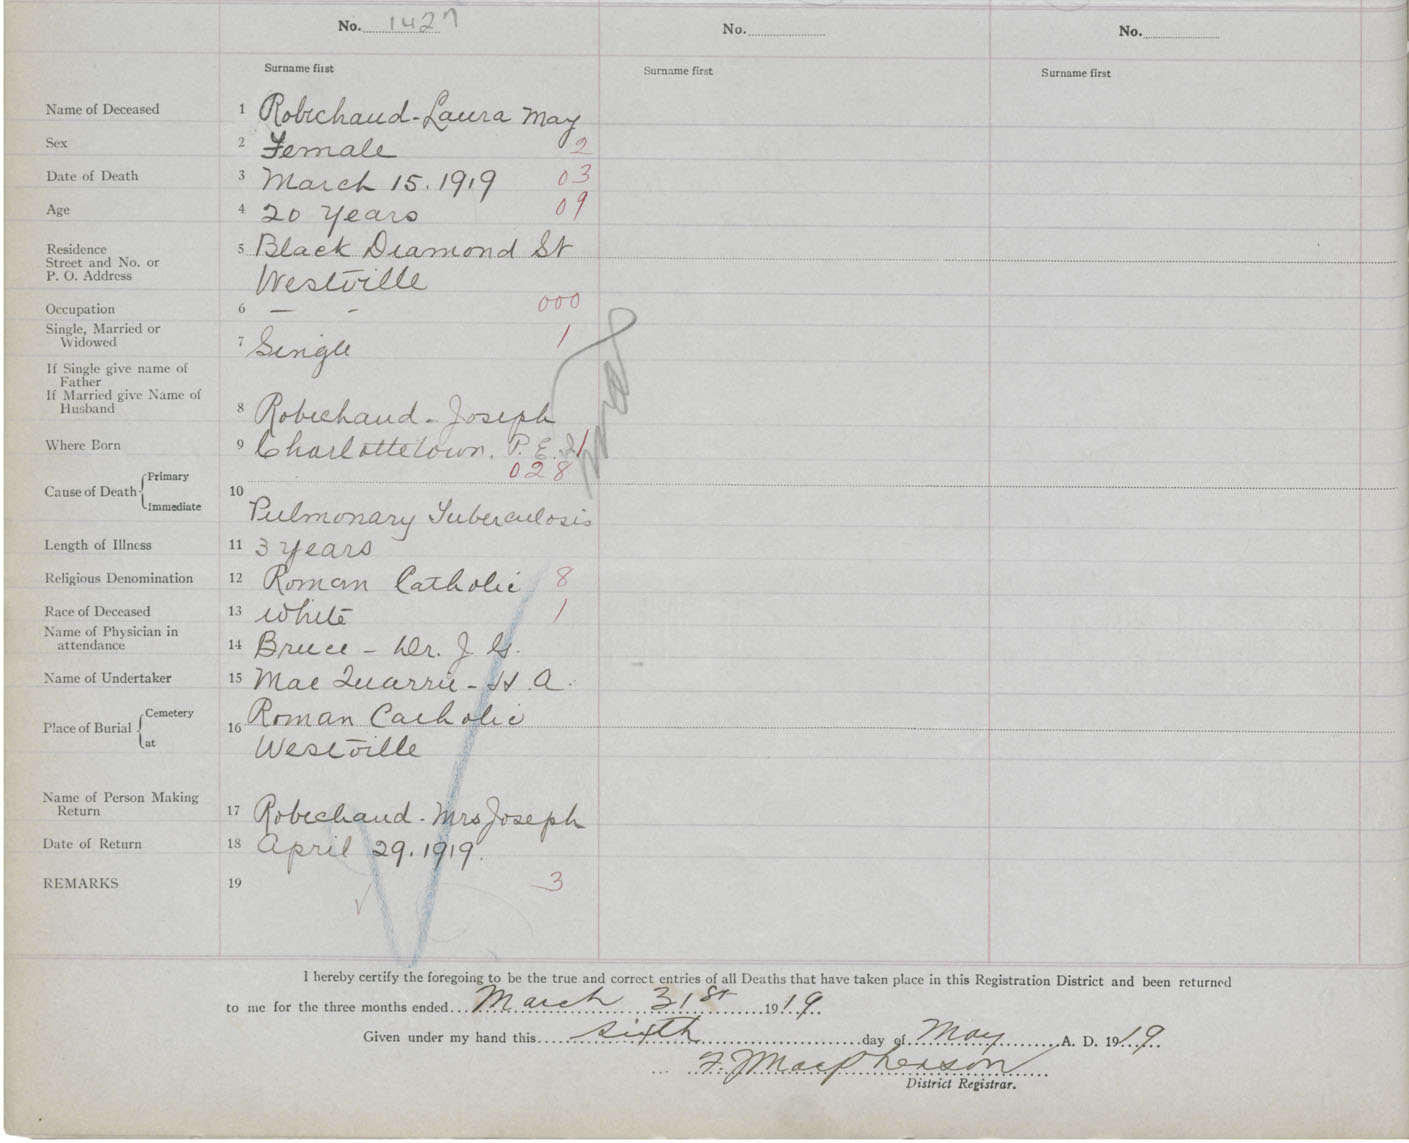 No. 1427 No. No.
Surname first Surname first Surname first
Name of Deceased 1 Robichaud - Laura May
Sex 2 Female 2
Date of Death 3 March 15. 1919 03
Age 4 20 years 09
Residence
Street and No. or
P. O. Address
5 Black Diamond St
Westville
Occupation 6 — - 000
Single, Married or
Widowed
7 Single 1
If Single give name of
Father
If Married give Name of
Husband
8 Robichaud - Joseph
Where Born 9 Charlottetown. P.E.I 1
028
Cause of Death { Primary
Immediate
10
Pulmonary Tuberculosis
Length of Illness 11 3 years
Religious Denomination 12 Roman Catholic 8
Race of Deceased 13 White 1
Name of Physician in
attendance
14 Bruce - Dr. J. G.
Name of Undertaker 15 Mac Quarrie - H. A.
Place of Burial { Cemetery
at
16 Roman Catholic
Westville
Name of Person Making
Return
17 Robichaud - Mrs Joseph
Date of Return 18 April 29. 1919.
REMARKS 19 3
I hereby certify the foregoing to be the true and correct entries of all Deaths that have taken place in this Registration District and been returned
to me for the three months ended March 31st 1919.
Given under my hand this sixth day of May A. D. 1919.
F. J. Macpherson
District Registrar.